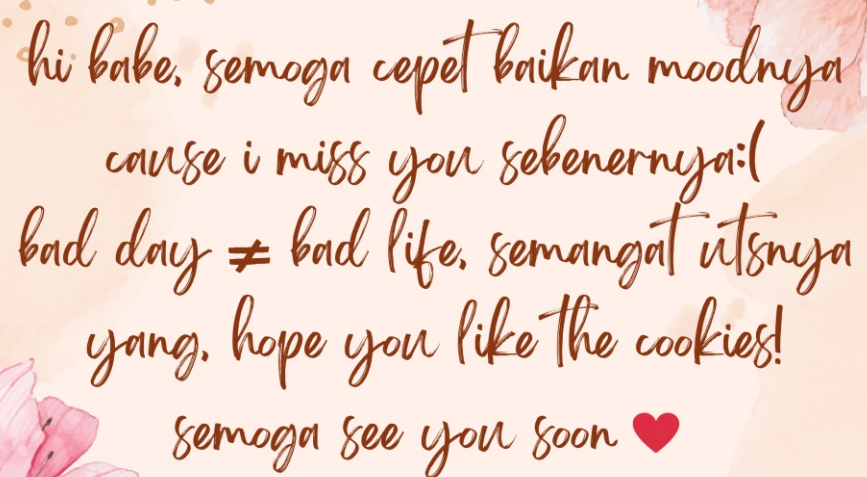 hi babe, semoga cepet baikan moodnya
cause i miss you sebenernya:(
bad day ≠ bad life, semangat utsnya
yang, hope you like the cookies!
semoga see you soon ❤